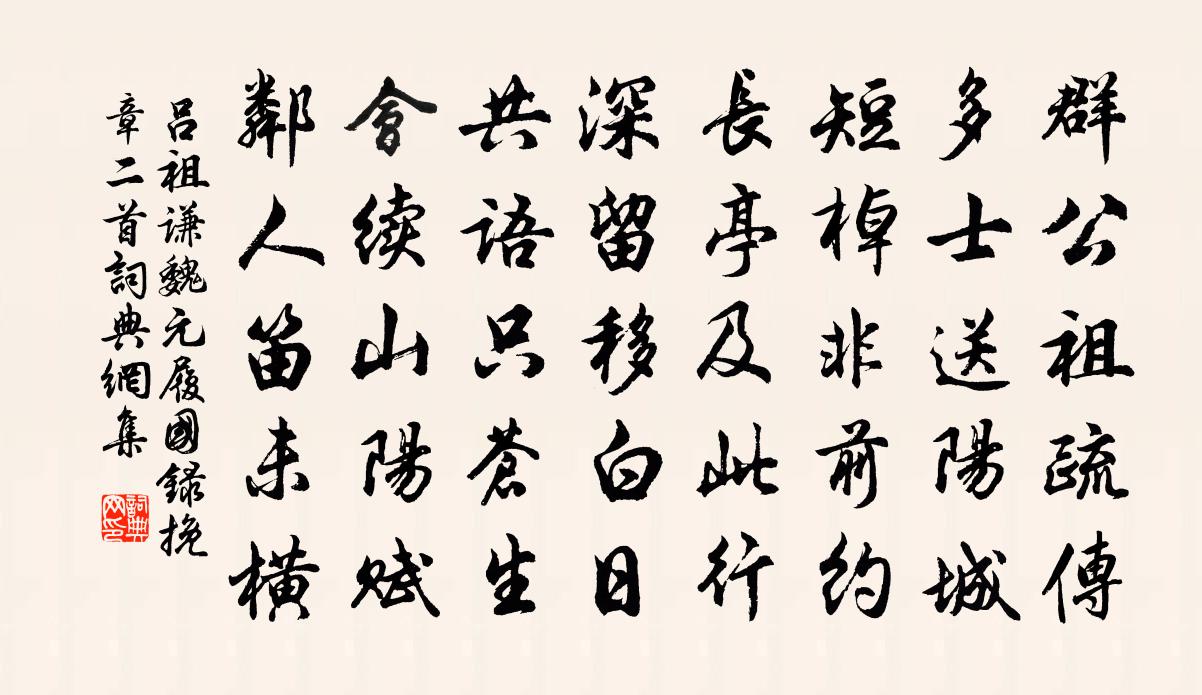 群公祖疏傅
多士送陽城
短棹非前約
長亭及此行
深留移白日
共語只蒼生
會續山陽賦
鄰人笛未橫
呂祖謙魏元履國錄挽
章二首詞典網集
詞典網印